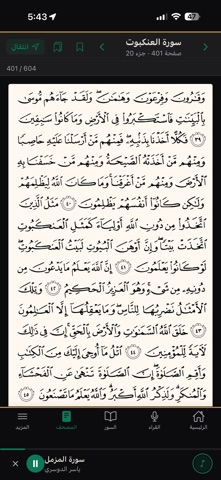 5:43
47
سورة العنكبوت
صفحة 401 · جزء 20
انتقال
401 / 604
وَقَٰرُونَ وَفِرْعَوْنَ وَهَٰمَٰنَ ۖ وَلَقَدْ جَآءَهُم مُّوسَىٰ
بِٱلْبَيِّنَٰتِ فَٱسْتَكْبَرُوا۟ فِى ٱلْأَرْضِ وَمَا كَانُوا۟ سَٰبِقِينَ
٣٩ فَكُلًّا أَخَذْنَا بِذَنۢبِهِۦ ۖ فَمِنْهُم مَّنْ أَرْسَلْنَا عَلَيْهِ حَاصِبًا
وَمِنْهُم مَّنْ أَخَذَتْهُ ٱلصَّيْحَةُ وَمِنْهُم مَّنْ خَسَفْنَا بِهِ
ٱلْأَرْضَ وَمِنْهُم مَّنْ أَغْرَقْنَا ۚ وَمَا كَانَ ٱللَّهُ لِيَظْلِمَهُمْ
وَلَٰكِن كَانُوٓا۟ أَنفُسَهُمْ يَظْلِمُونَ ٤٠ مَثَلُ ٱلَّذِينَ
ٱتَّخَذُوا۟ مِن دُونِ ٱللَّهِ أَوْلِيَآءَ كَمَثَلِ ٱلْعَنكَبُوتِ
ٱتَّخَذَتْ بَيْتًا ۖ وَإِنَّ أَوْهَنَ ٱلْبُيُوتِ لَبَيْتُ ٱلْعَنكَبُوتِ ۖ
لَوْ كَانُوا۟ يَعْلَمُونَ ٤١ إِنَّ ٱللَّهَ يَعْلَمُ مَا يَدْعُونَ مِن
دُونِهِۦ مِن شَىْءٍ ۚ وَهُوَ ٱلْعَزِيزُ ٱلْحَكِيمُ ٤٢ وَتِلْكَ
ٱلْأَمْثَٰلُ نَضْرِبُهَا لِلنَّاسِ ۖ وَمَا يَعْقِلُهَآ إِلَّا ٱلْعَٰلِمُونَ
٤٣ خَلَقَ ٱللَّهُ ٱلسَّمَٰوَٰتِ وَٱلْأَرْضَ بِٱلْحَقِّ ۚ إِنَّ فِى ذَٰلِكَ
لَءَايَةً لِّلْمُؤْمِنِينَ ٤٤ ٱتْلُ مَآ أُوحِىَ إِلَيْكَ مِنَ ٱلْكِتَٰبِ
وَأَقِمِ ٱلصَّلَوٰةَ ۖ إِنَّ ٱلصَّلَوٰةَ تَنْهَىٰ عَنِ ٱلْفَحْشَآءِ
وَٱلْمُنكَرِ ۗ وَلَذِكْرُ ٱللَّهِ أَكْبَرُ ۗ وَٱللَّهُ يَعْلَمُ مَا تَصْنَعُونَ ٤٥
الرئيسية
القراء
السور
المصحف
المزيد
سورة المزمل
ياسر الدوسري